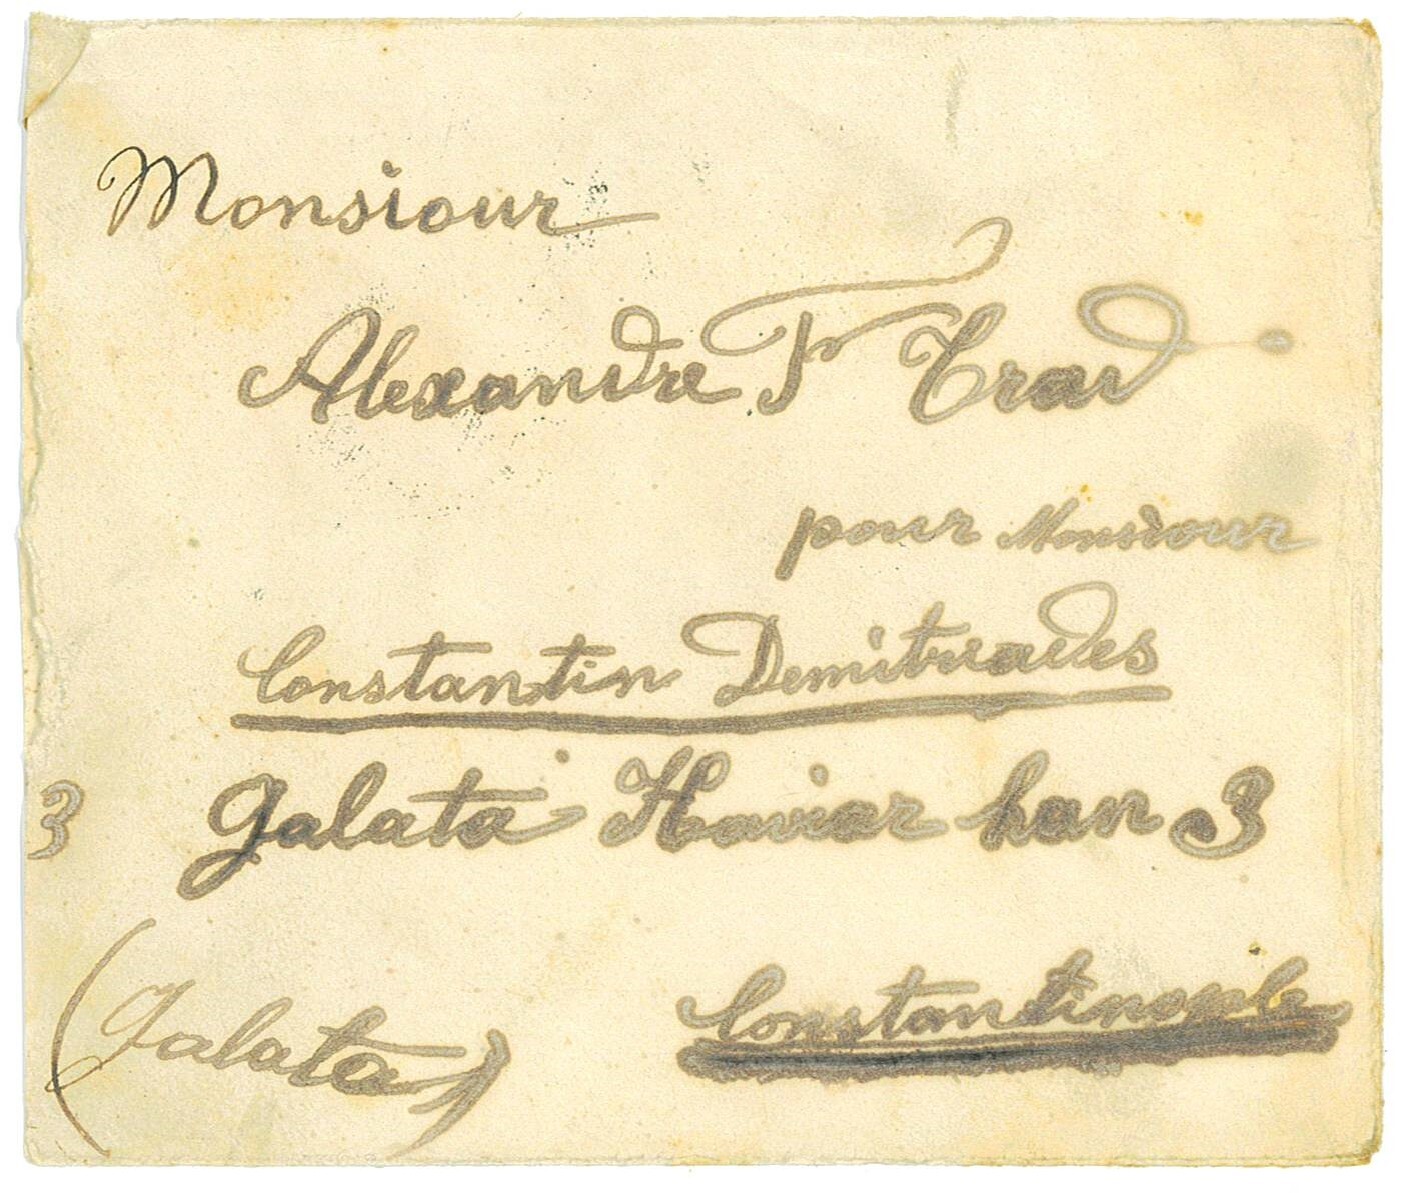 Monsieur
Alexandre Fr Trad
pour Monsieur
Constantin Demitriades
3 Galata Haviar han 3
(Galata) Constantinople